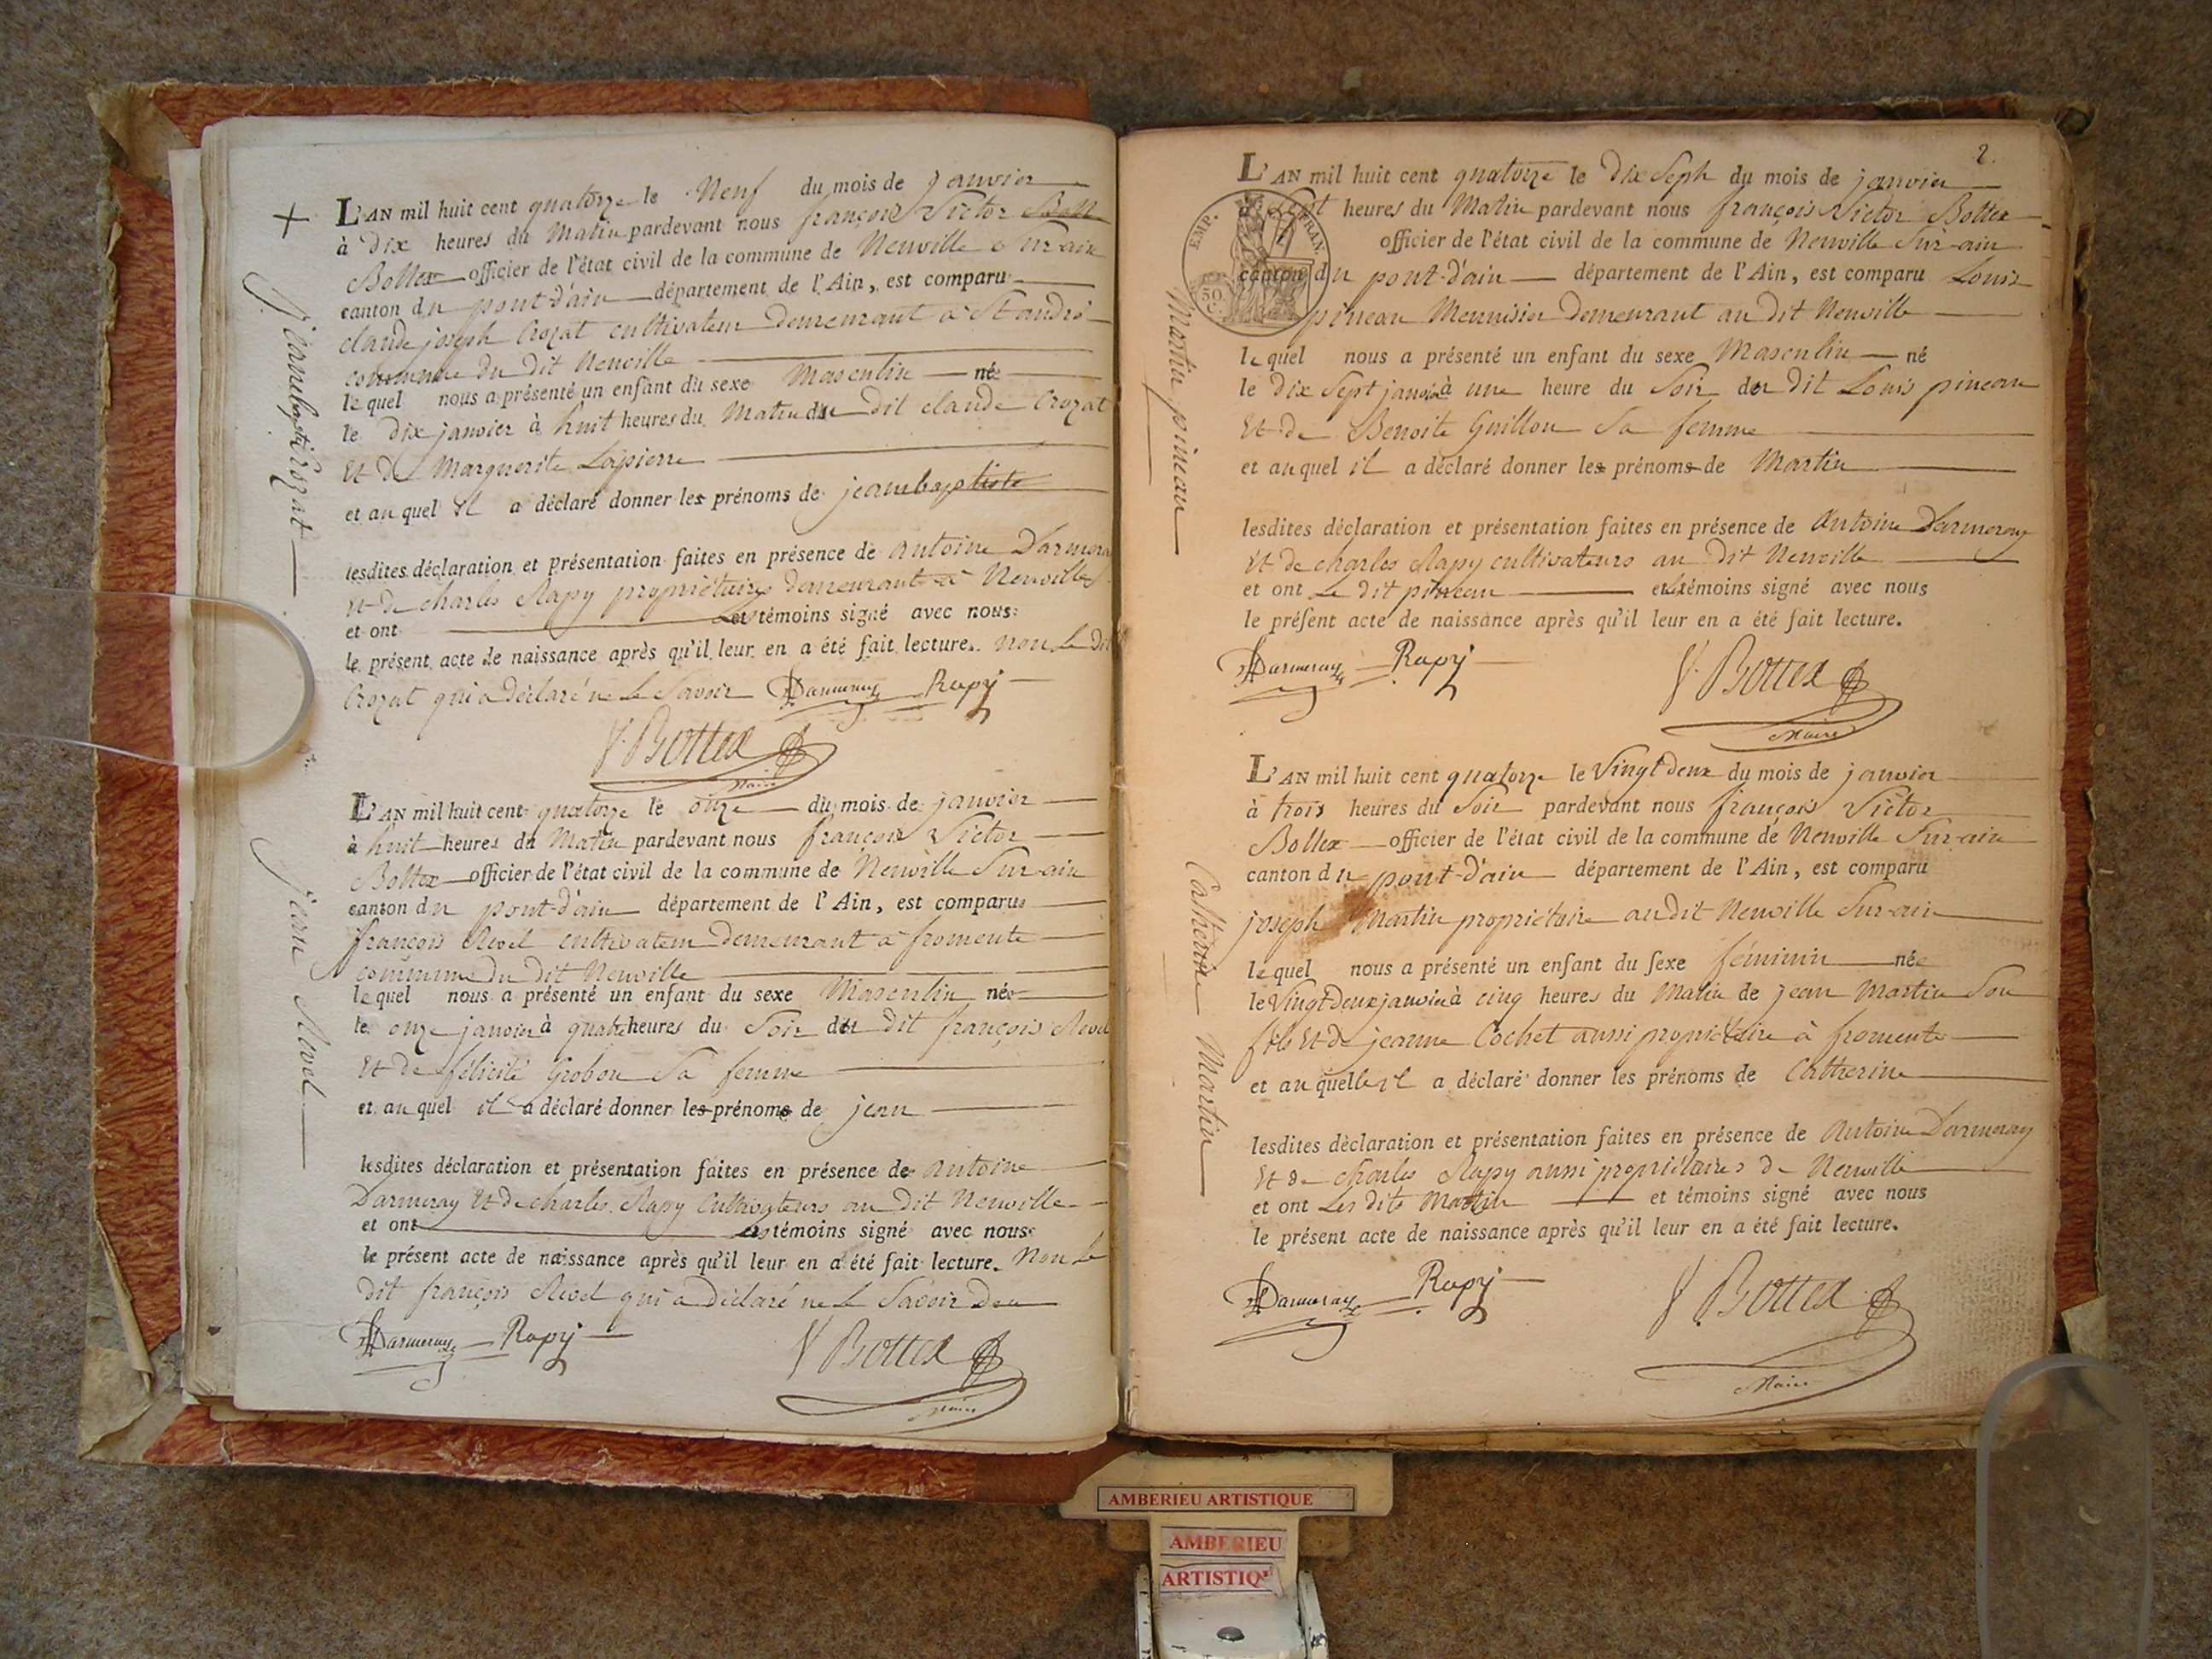 L'AN mil huit cent quatorze le Neuf du mois de janvier
à Dix heures du Matin pardevant nous françois Victor
Bottex officier de l'état civil de la commune de Neuville Sur ain
canton du pont-d'ain département de l'Ain, est comparu
claude joseph Crozat cultivateur Demeurant a St andré
commune du dit Neuville
lequel nous a présenté un enfant du sexe Masculin né
le dix janvier à huit heures du Matin du dit claude Crozat
Et De Marguerite Lapierre
et auquel il a déclaré donner les prénoms de jeanbaptiste
lesdites déclaration et présentation faites en présence de antoine Darmeray
Et De charles Rapy propriétaires demeurant a Neuville
et ont Les témoins signé avec nous
le présent acte de naissance après qu'il leur en a été fait lecture. non Le Dit
Crozat qui a Déclaré ne Le Savoir Darmeray Rapy
V. Bottex
Maire
jeanbaptiste Crozat
L'AN mil huit cent quatorze le onze du mois de janvier
à huit heures du Matin pardevant nous françois Victor
Bottex officier de l'état civil de la commune de Neuville Sur ain
canton du pont-d'ain département de l'Ain, est comparu
françois Revel cultivateur Demeurant a fromente
commune Du Dit Neuville
lequel nous a présenté un enfant du sexe Masculin né
le onze janvier à quatre heures du Soir du dit françois Revel
Et De félicité Grobon Sa femme
et auquel il a déclaré donner les prénoms de jean
lesdites déclaration et présentation faites en présence de antoine
Darmeray Et De charles Rapy Cultivateurs au dit Neuville
et ont Les témoins signé avec nous
le présent acte de naissance après qu'il leur en a été fait lecture. Non Le
Dit françois Revel qui a Déclaré ne Le Savoir
Darmeray Rapy V Bottex
Maire
jean Revel
2.
L'AN mil huit cent quatorze le Dix Sept du mois de janvier
à Sept heures du Matin pardevant nous françois Victor Bottex
officier de l'état civil de la commune de Neuville Sur ain
canton du pont-d'ain département de l'Ain, est comparu Louis
pineau Menuisier Demeurant au dit Neuville
EMP. FRAN.
50
lequel nous a présenté un enfant du sexe Masculin né
le Dix Sept janvier à une heure du Soir du Dit Louis pineau
Et De Benoite Guillon Sa femme
et auquel il a déclaré donner les prénoms de Martin
lesdites déclaration et présentation faites en présence de Antoine Darmeray
Et de charles Rapy cultivateurs au dit Neuville
et ont Le dit pineau et Les témoins signé avec nous
le présent acte de naissance après qu'il leur en a été fait lecture.
Darmeray Rapy V. Bottex
Maire
Martin pineau
L'AN mil huit cent quatorze le Vingt Deux du mois de janvier
à trois heures du Soir pardevant nous françois Victor
Bottex officier de l'état civil de la commune de Neuville Sur ain
canton du pont-d'ain département de l'Ain, est comparu
joseph Martin propriétaire audit Neuville Sur-ain
lequel nous a présenté un enfant du sexe féminin née
le Vingt Deux janvier à cinq heures du Matin de jean Martin Son
fils Et De jeanne Cochet aussi propriétaire à fromente
et auquelle il a déclaré donner les prénoms de Catherine
lesdites déclaration et présentation faites en présence de Antoine Darmeray
Et De charles Rapy aussi propriétaires De Neuville
et ont Les dits Martin et témoins signé avec nous
le présent acte de naissance après qu'il leur en a été fait lecture.
Darmeray Rapy V. Bottex
Maire
Catherine Martin
AMBERIEU ARTISTIQUE
AMBERIEU
ARTISTIQ